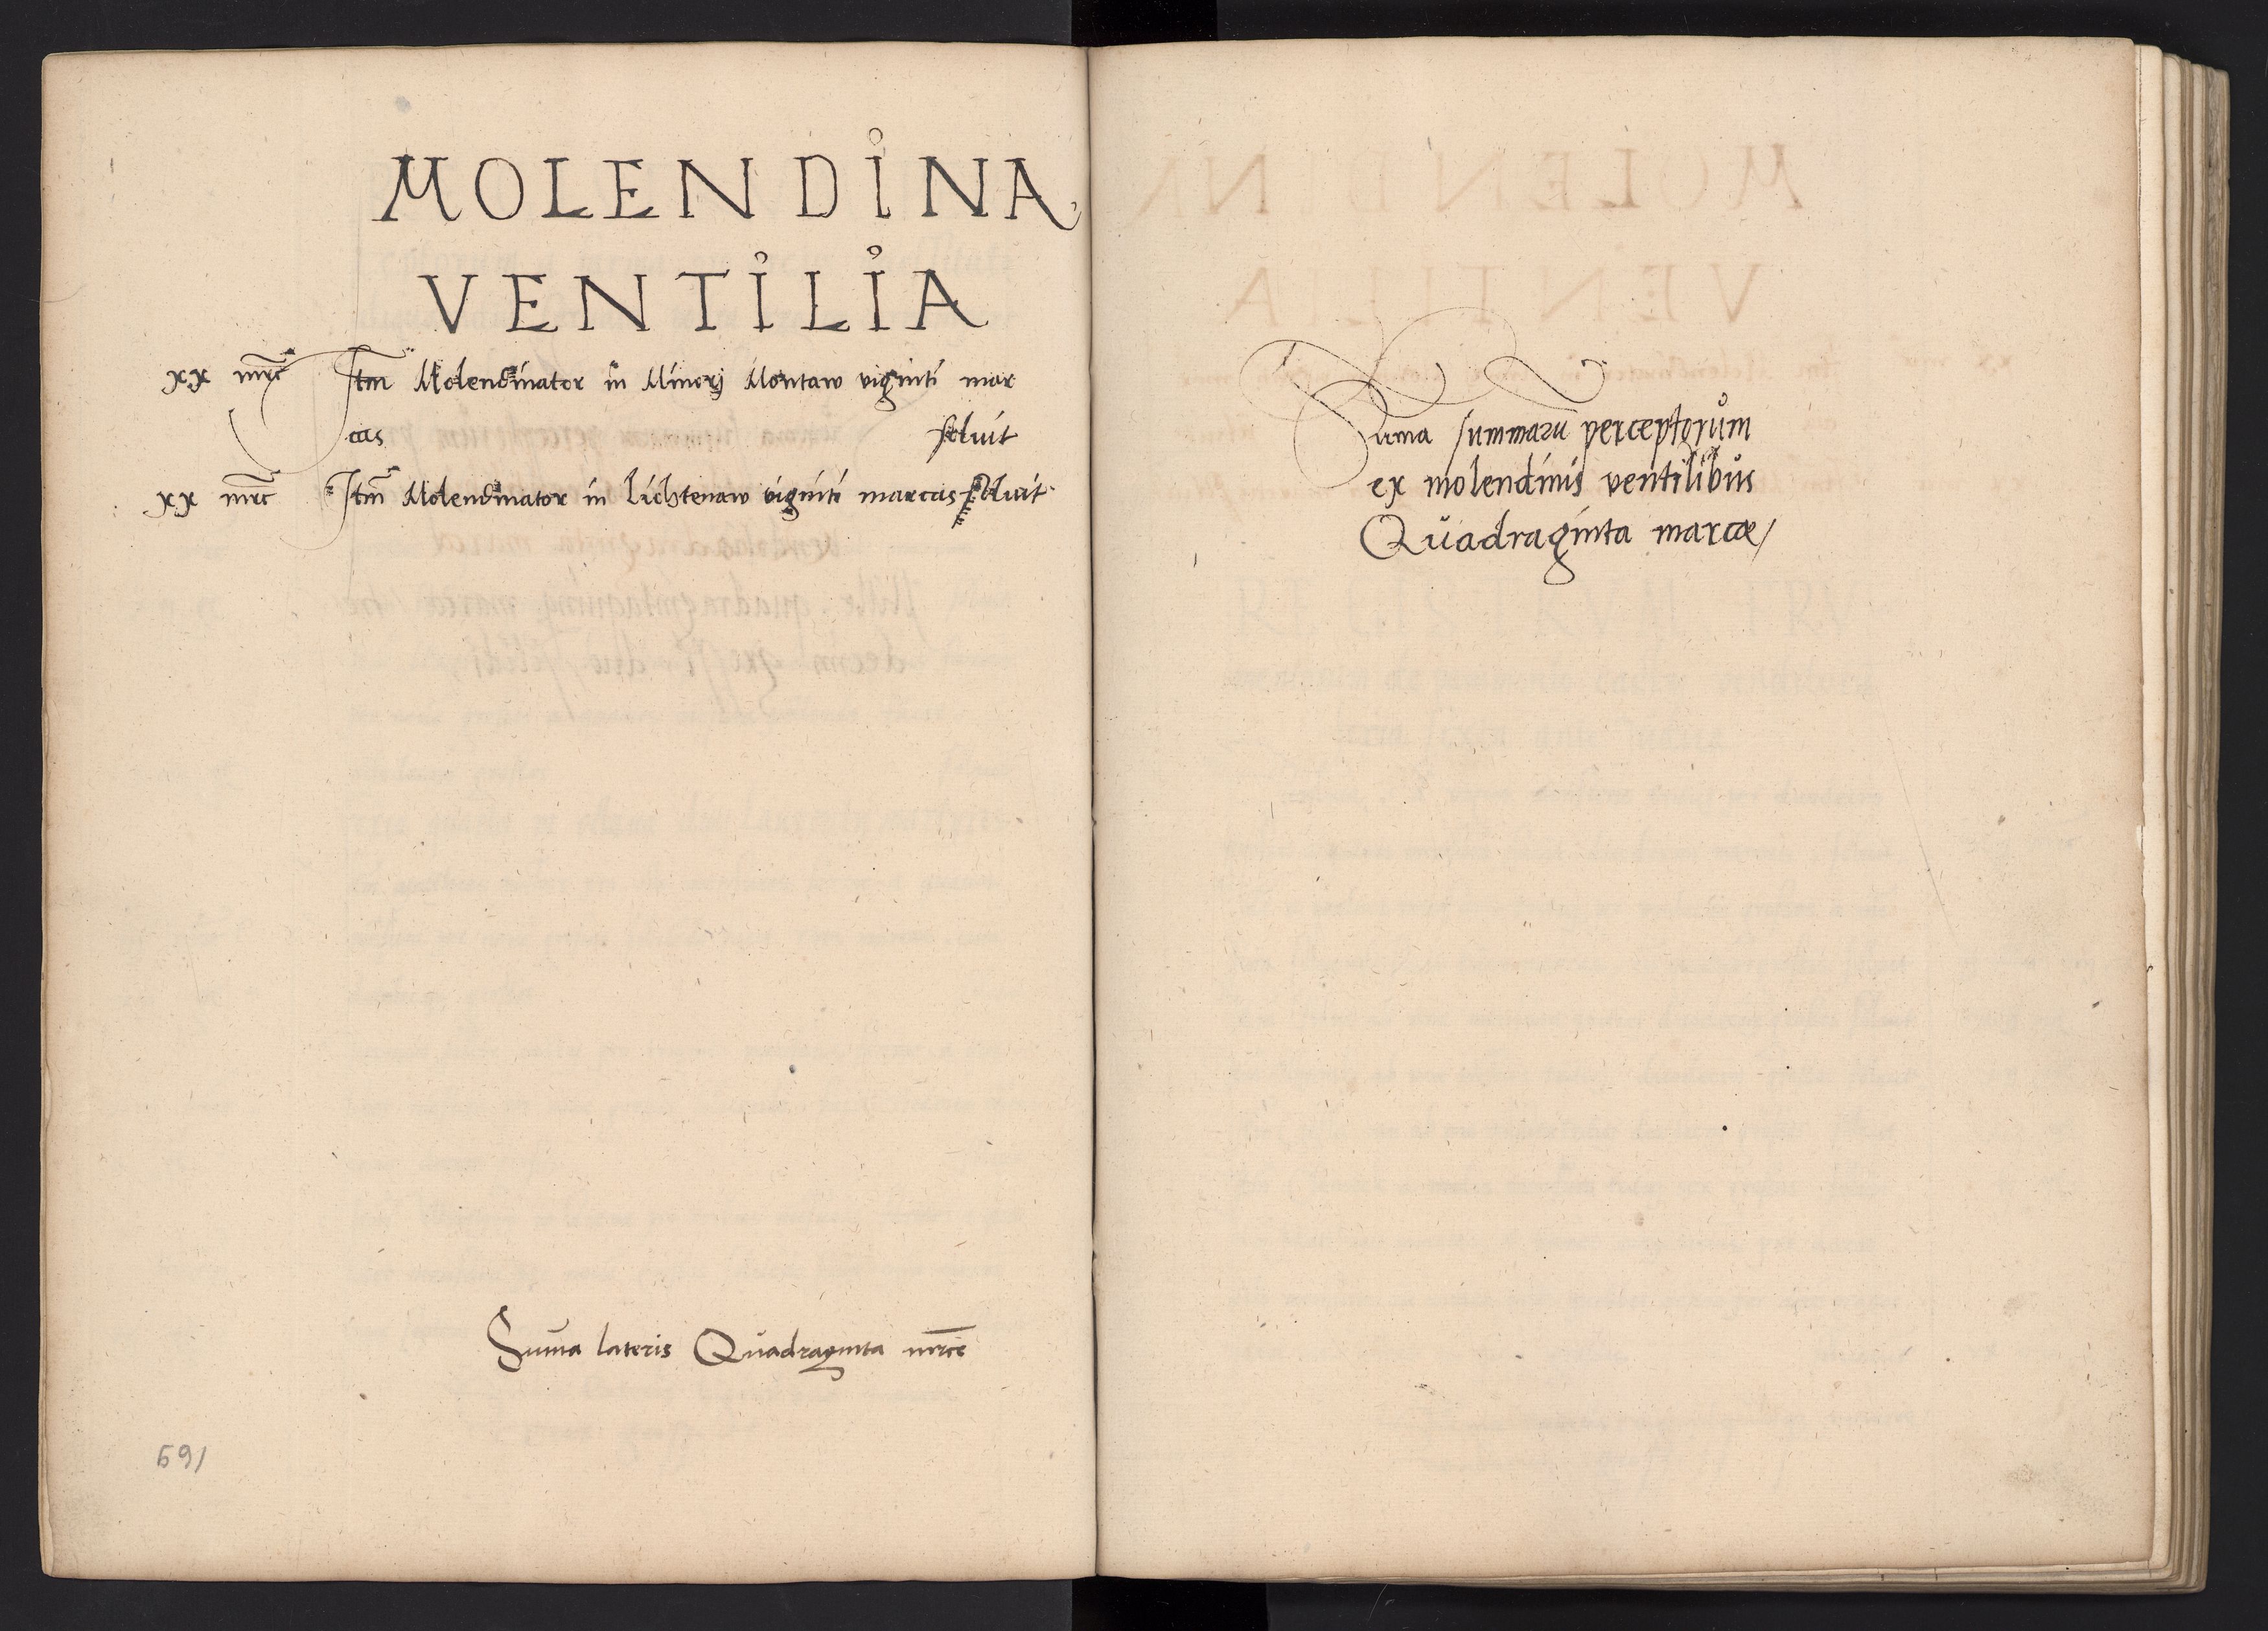 MOLENDINA
VENTILIA
xx mrc Itm Molendinator in Minorj Montaw viginti mar
cas soluit
xx mrc Itm Molendinator in Lichtenaw viginti marcas soluit
Suma lateris Quadraginta mrce
691
Suma summaru perceptorum
ex molendinis ventilibus
Quadraginta marcæ/